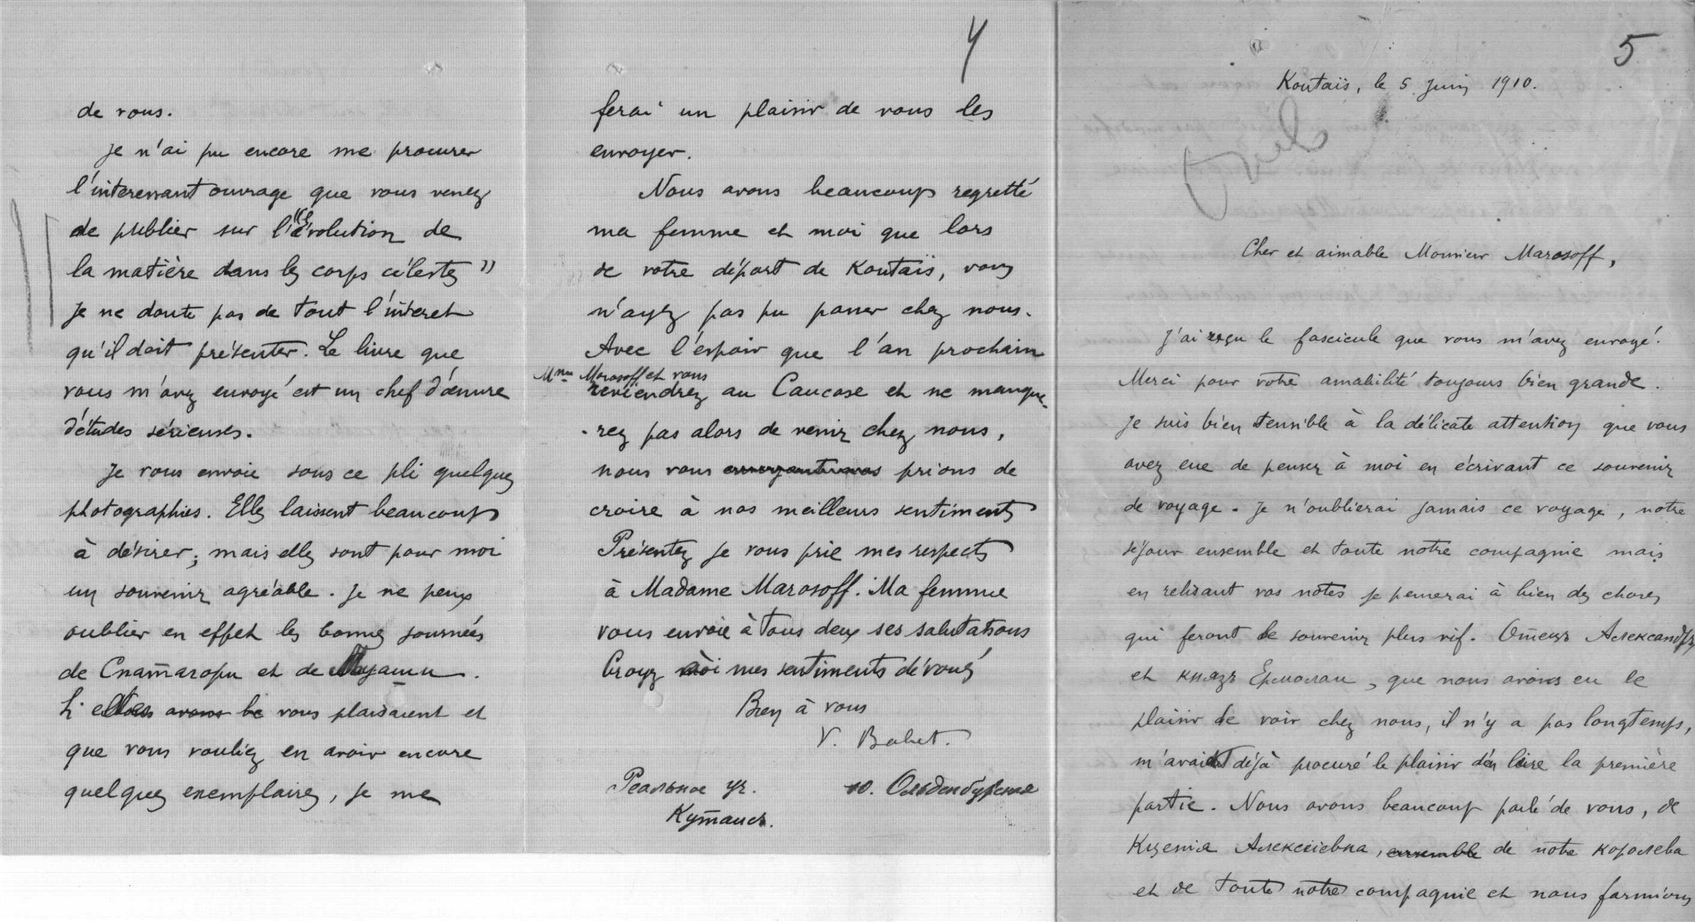 de vous.
Je n'ai pu encore me procurer
l'interessant ouvrage que vous venez
de publier sur l'"Évolution de
la matière dans les corps célestes"
Je ne doute pas de tout l'intéret
qu'il doit présenter. Le livre que
vous m'avez envoyé est un chef d'œuvre
d'études sérieuses.
Je vous envoie sous ce pli quelques
photographies. Elles laissent beaucoup
à désirer; mais elles sont pour moi
un souvenir agréable. Je ne peux
oublier en effet les bonnes journées
de et de
Si vous plaisaient et
que vous vouliez en avoir encore
quelques exemplaires, je me
4
ferai un plaisir de vous les
envoyer.
Nous avons beaucoup regretté
ma femme et moi que lors
de votre départ de Koutaïs, vous
n'ayez pas pu passer chez nous.
Avec l'espoir que l'an prochain
Mme Morosoff et vous
reviendrez au Caucase et ne manque-
-rez pas alors de venir chez nous,
nous vous prions de
croire à nos meilleurs sentiments
Présentez je vous prie mes respects
à Madame Morosoff. Ma femme
vous envoie à tous deux ses salutations
Croyez à mes sentiments dévoués
Bien à vous
V.
Реальное уч. ю. Ольденбургская
Кутаисъ.
5
Koutaïs, le 5 Juin 1910.
Cher et aimable Monsieur Morosoff,
J'ai reçu le fascicule que vous m'avez envoyé.
Merci pour votre amabilité toujours bien grande.
Je suis bien sensible à la délicate attention que vous
avez eue de penser à moi en écrivant ce souvenir
de voyage. Je n'oublierai jamais ce voyage, notre
séjour ensemble et toute notre compagnie mais
en relisant vos notes je penserai à bien des choses
qui feront le souvenir plus vif. Отецъ Александръ
et князь Ермолай, que nous avons eu le
plaisir de voir chez nous, il n'y a pas longtemps,
m'avaient déjà procuré le plaisir d'en lire la première
partie. Nous avons beaucoup parlé de vous, de
Ксенія Алексѣевна, ensemble de notre королева
et de toute notre compagnie et nous formions